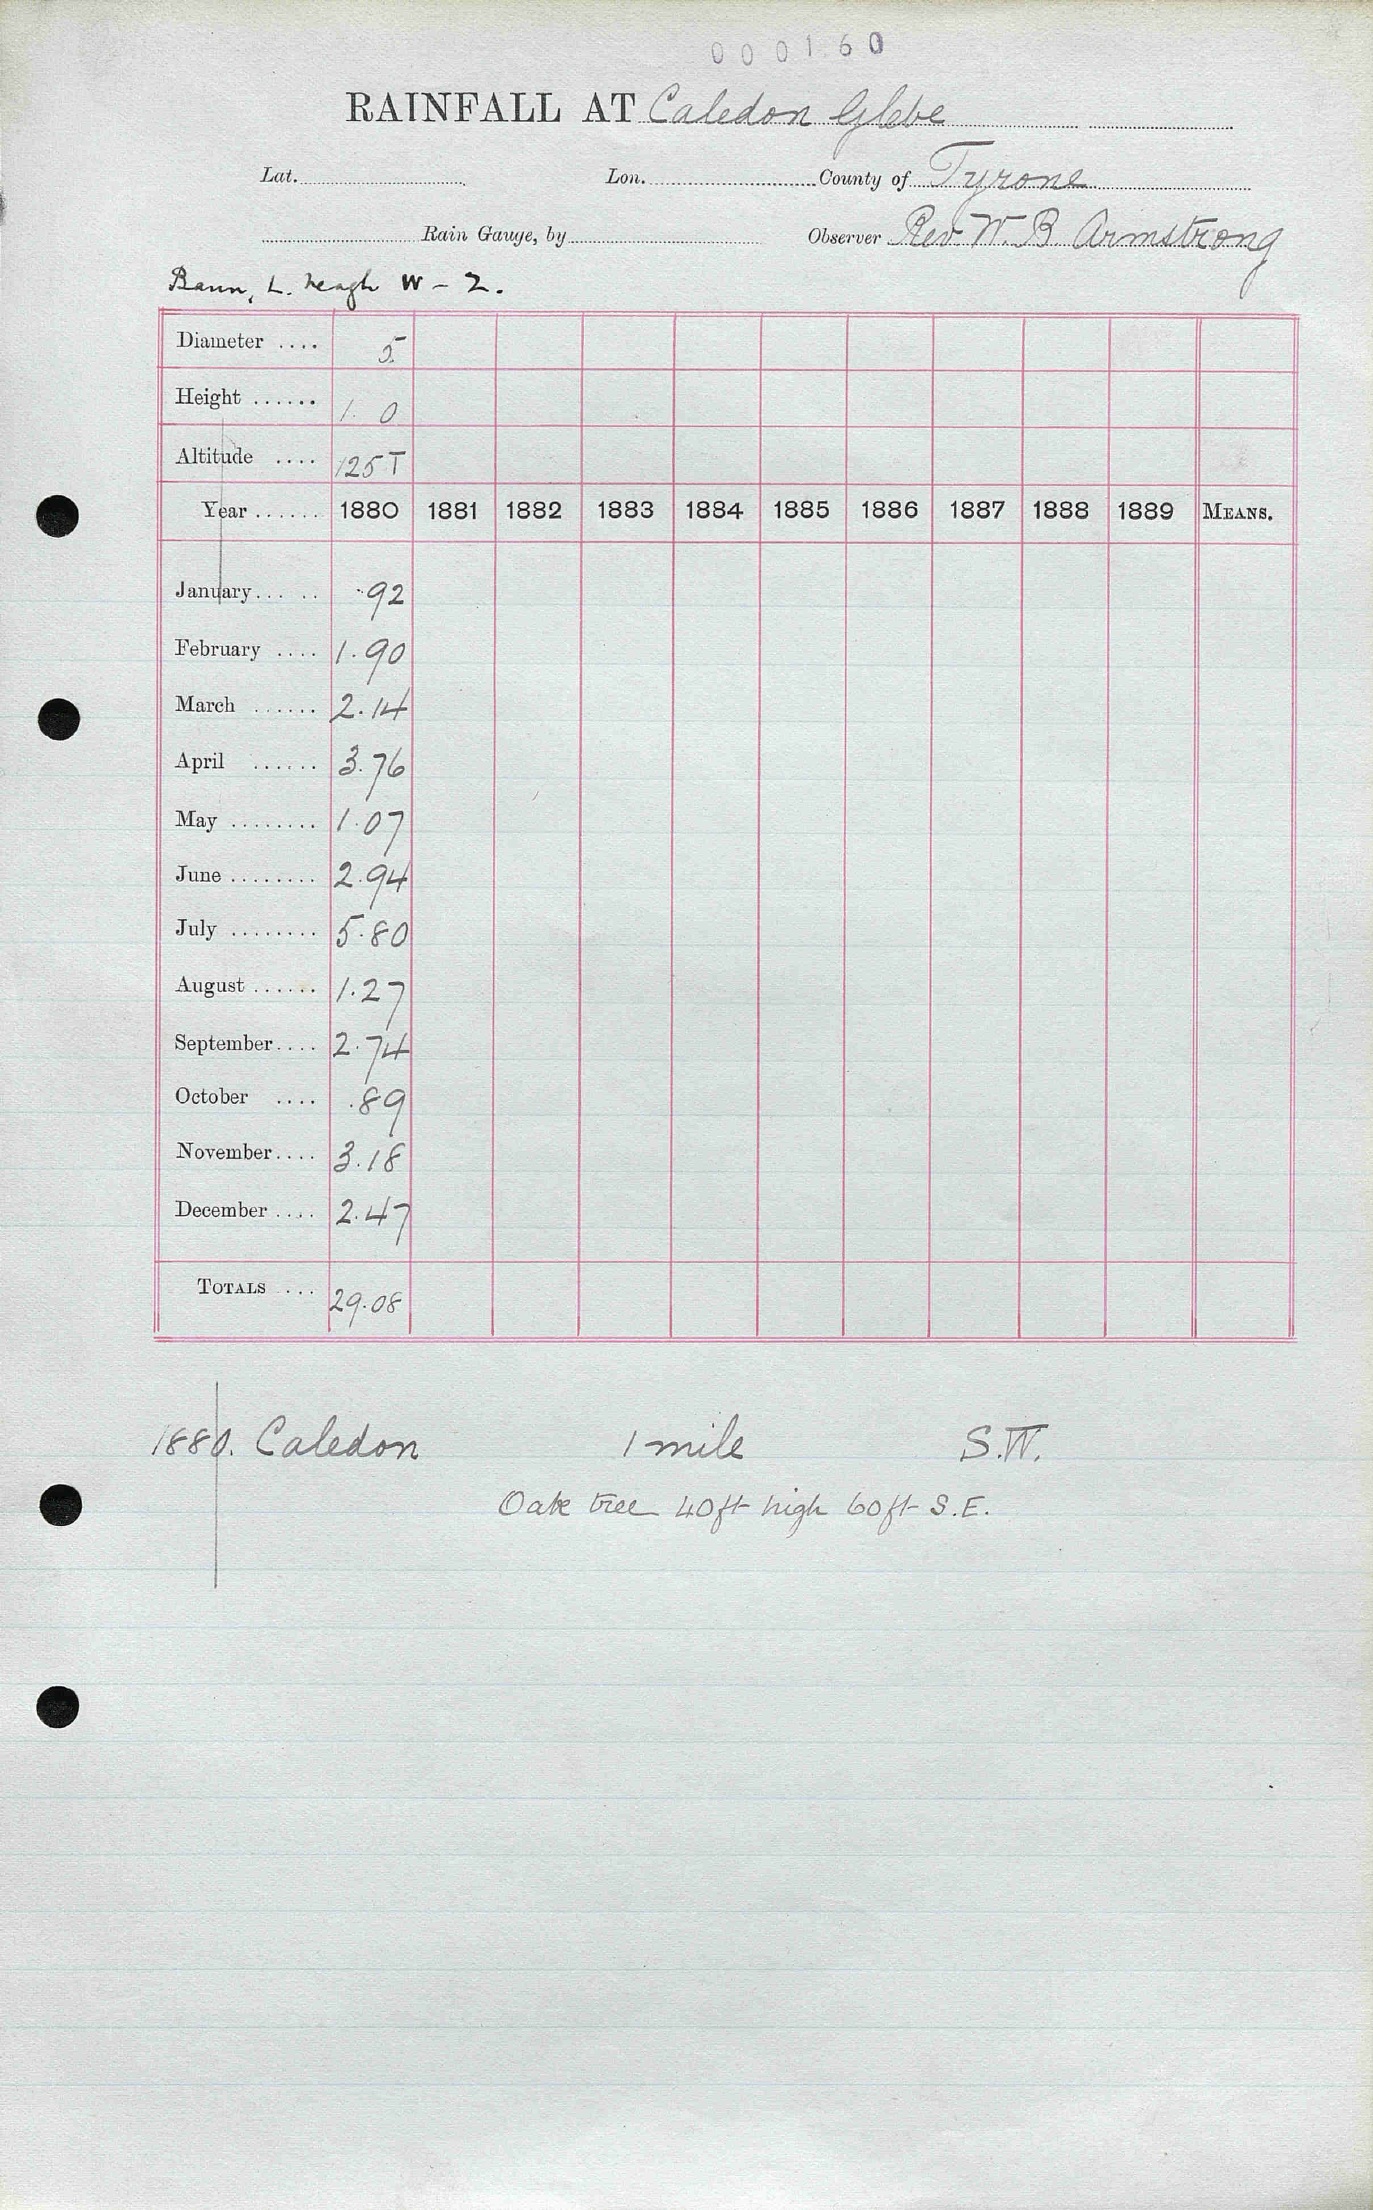 000160
RAINFALL AT Caledon Glebe
Lat. Lon. County of Tyrone
Rain Gauge, by Observer Rev W. B Armstrong
Bann, L. Neagh W - 2.
Diameter .... 5
Height ...... 1. 0
Altitude .... 125 T
Year ...... 1880 1881 1882 1883 1884 1885 1886 1887 1888 1889 MEANS.
January ..... .92
February .... 1.90
March ...... 2.14
April ...... 3.76
May ........ 1.07
June ........ 2.94
July ........ 5.80
August ...... 1.27
September .... 2.74
October .... .89
November .... 3.18
December .... 2.47
TOTALS ... 29.08
1880. Caledon 1 mile S.W.
Oak tree 40ft high 60ft S.E.